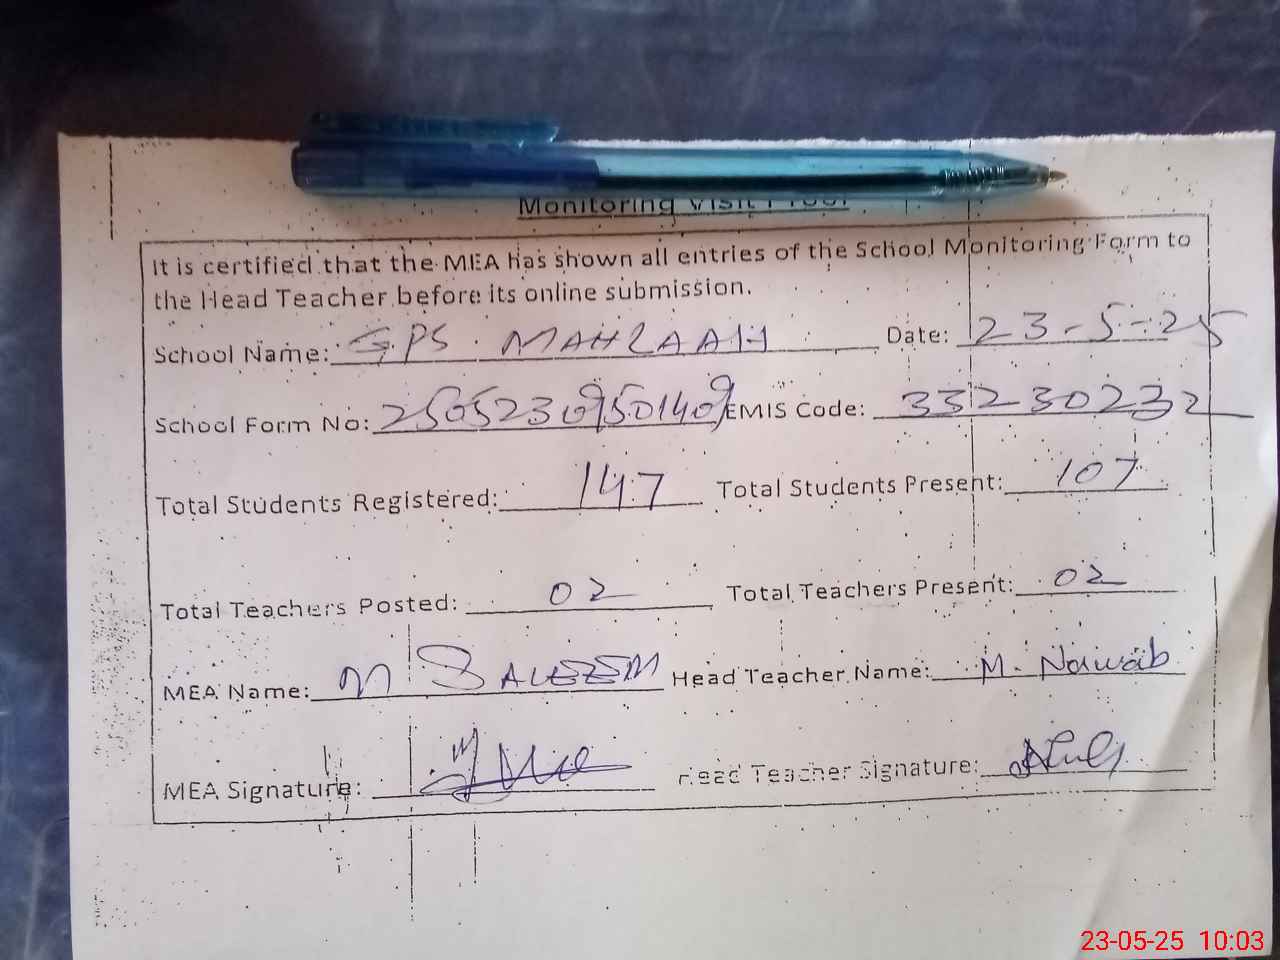 Monitoring Visit Proof
It is certified that the MEA has shown all entries of the School Monitoring Form to
the Head Teacher before its online submission.
School Name: GPS MAHRAAH Date: 23-5-25
School Form No: 25052309501409 EMIS Code: 33230232
Total Students Registered: 147 Total Students Present: 107
Total Teachers Posted: 02 Total Teachers Present: 02
MEA Name: M SALEEM Head Teacher Name: M. Nawab
MEA Signature: Head Teacher Signature:
23-05-25 10:03